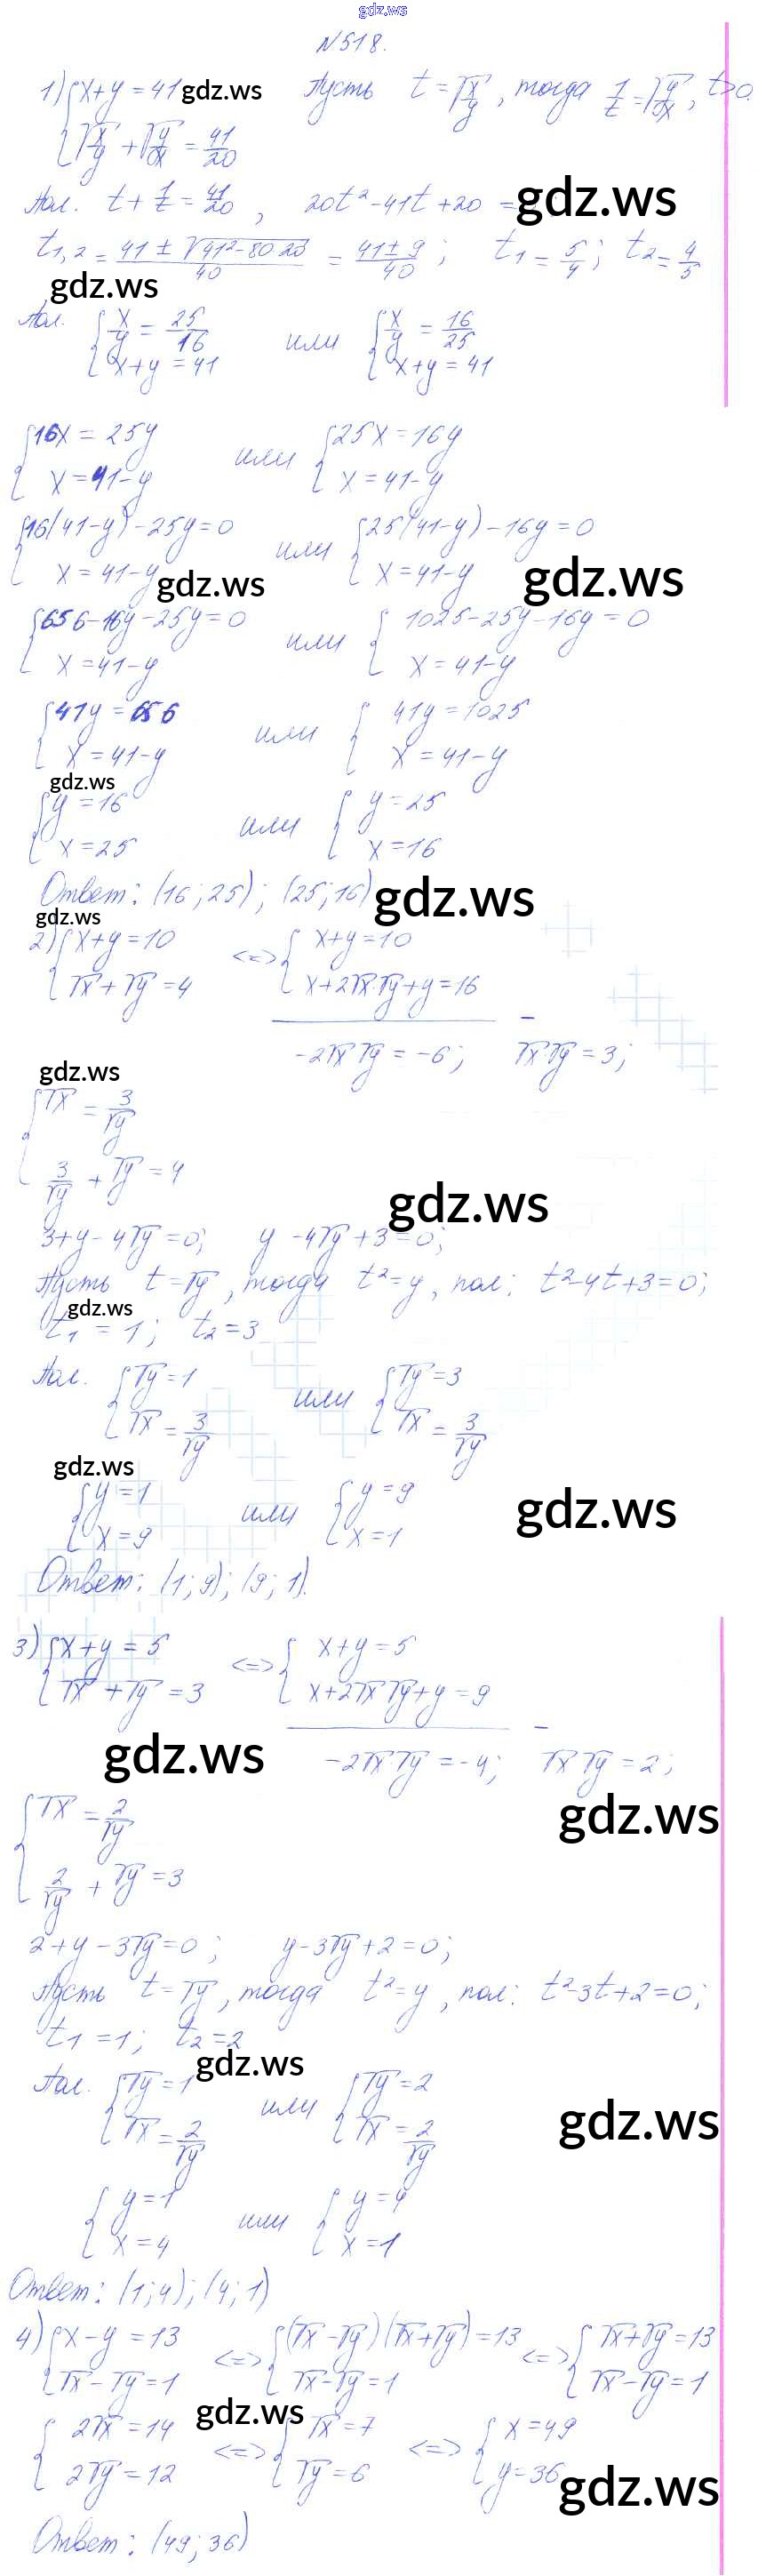 gdz.ws
N518.
1) {x+y=41 gdz.ws Пусть t=√(x/y), тогда 1/t=√(y/x), t>0.
{√(x/y)+√(y/x)=41/20
Пол. t+1/t=41/20, 20t²-41t+20= gdz.ws
t1,2=(41±√(41²-80·20))/40=(41±9)/40; t1=5/4; t2=4/5
gdz.ws
Пол. {x/y=25/16 или {x/y=16/25
x+y=41 x+y=41
{16x=25y или {25x=16y
x=41-y x=41-y
{16(41-y)-25y=0 или {25(41-y)-16y=0
x=41-y gdz.ws x=41-y gdz.ws
{656-16y-25y=0 или {1025-25y-16y=0
x=41-y x=41-y
{41y=656 или {41y=1025
x=41-y x=41-y
gdz.ws
{y=16 или {y=25
x=25 x=16
Ответ: (16;25); (25;16) gdz.ws
gdz.ws
2) {x+y=10 <=> {x+y=10
√x+√y=4 x+2√x√y+y=16
-2√x√y=-6; √x√y=3;
gdz.ws
{√x=3/√y
3/√y+√y=4
gdz.ws
3+y-4√y=0; y-4√y+3=0;
Пусть t=√y, тогда t²=y, пол: t²-4t+3=0;
gdz.ws
t1=1; t2=3
Пол. {√y=1 или {√y=3
√x=3/√y √x=3/√y
gdz.ws
{y=1 или {y=9 gdz.ws
x=9 x=1
Ответ: (1;9); (9;1).
3) {x+y=5 <=> {x+y=5
√x+√y=3 x+2√x√y+y=9
gdz.ws -2√x√y=-4; √x√y=2;
gdz.ws
{√x=2/√y
2/√y+√y=3
2+y-3√y=0; y-3√y+2=0;
Пусть t=√y, тогда t²=y, пол: t²-3t+2=0;
t1=1; t2=2
gdz.ws
Пол. {√y=1 или {√y=2
√x=2/√y √x=2/√y gdz.ws
{y=1 или {y=4
x=4 x=1
Ответ: (1;4); (4;1)
4) {x-y=13 <=> {(√x-√y)(√x+√y)=13 <=> {√x+√y=13
√x-√y=1 √x-√y=1 √x-√y=1
gdz.ws
{2√x=14 <=> {√x=7 <=> {x=49
2√y=12 √y=6 y=36 gdz.ws
Ответ: (49;36)